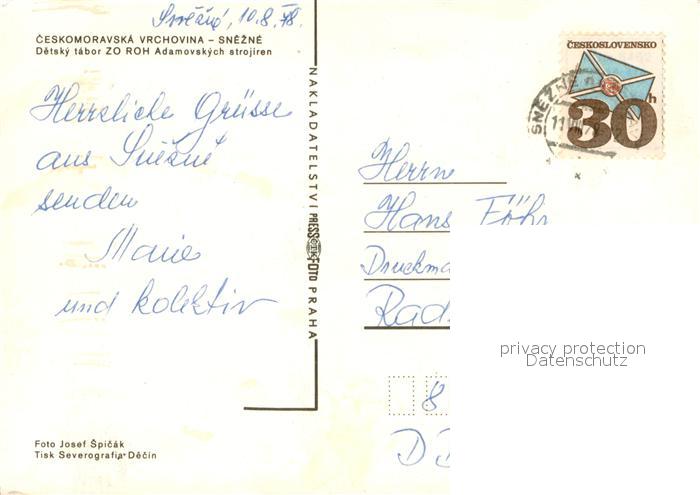 Sněžné, 10.8.78.
ČESKOMORAVSKÁ VRCHOVINA – SNĚŽNÉ
Dětský tábor ZO ROH Adamovských strojíren
Herzliche Grüsse
aus Sněžné
senden
Marie
und kolektiv
Foto Josef Špičák
Tisk Severografia Děčín
NAKLADATELSTVÍ PRESSFOTO PRAHA
ČTK
ČESKOSLOVENSKO
30h
SNĚŽNÉ
Herrn
Hans Föhr
Druckma
Rad
8
D
privacy protection
Datenschutz